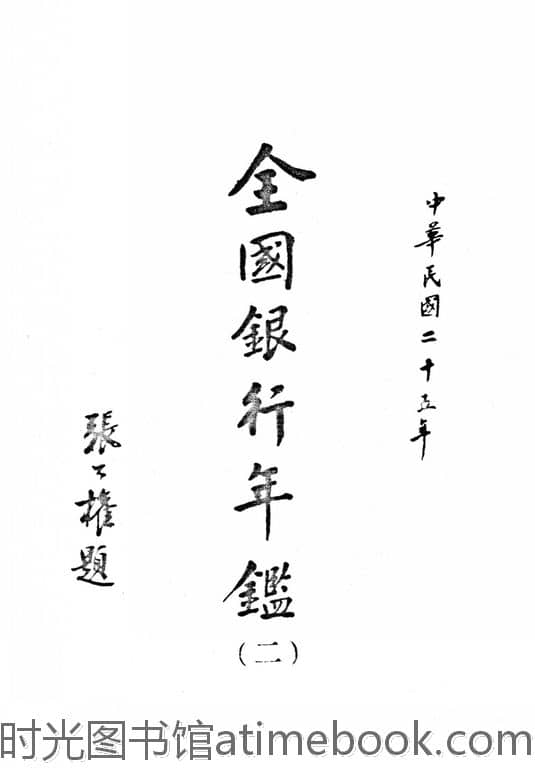 中華民國二十五年
全國銀行年鑑
(二)
張公權題
时光图书馆atimebook.com